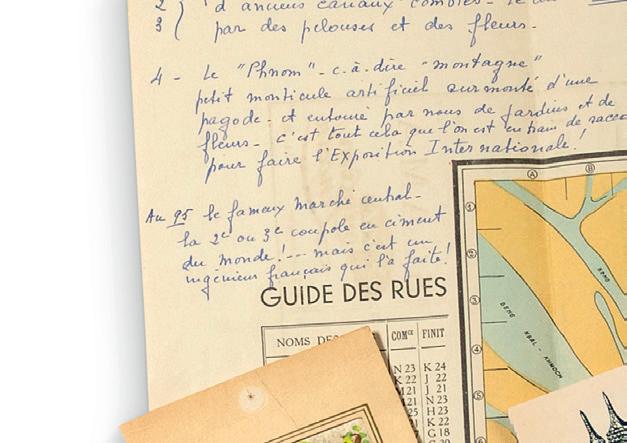 2
3 ) d'anciens canaux comblés
par des pelouses et des fleurs.
4 - Le "Phnom" - c.à.dire "montagne"
petit monticule artificiel surmonté d'une
pagode - et entouré par nous de jardins et de
fleurs - c'est tout cela que l'on est en train de sacca
pour faire l'Exposition Internationale!
Au 95 le fameux marché central -
la 2e ou 3e coupole en ciment
du monde!... mais c'est un
ingénieur français qui l'a faite!
GUIDE DES RUES
NOMS DES COMce FINIT
N 23 K 24
K 22 J 22
M 21 J 21
M 25 N 23
H 23 H 22
K 22
G 18
G 20
A B
1
2
3
4
5
6
DENG KBAL-KHMOCH